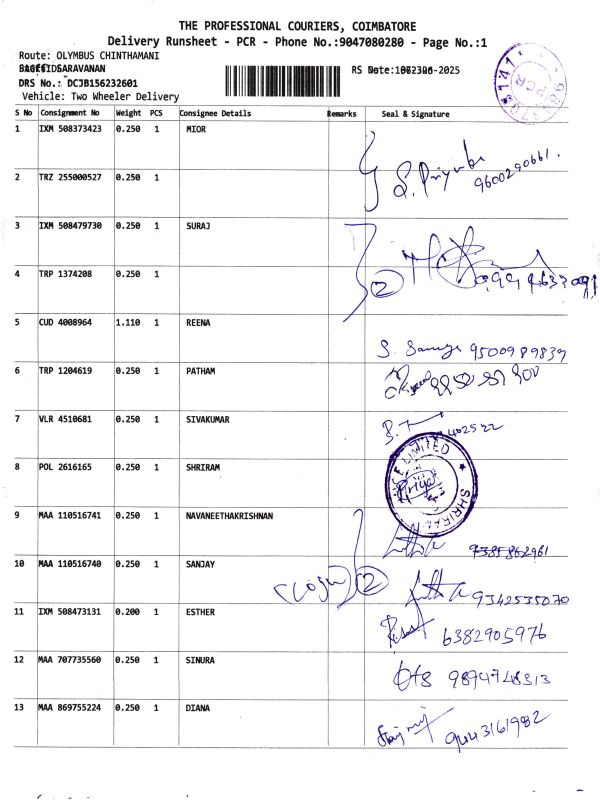 THE PROFESSIONAL COURIERS, COIMBATORE
Delivery Runsheet - PCR - Phone No.:9047080280 - Page No.:1
Route: OLYMBUS CHINTHAMANI
SARAVANAN
DRS No.: DCJB156232601
Vehicle: Two Wheeler Delivery
S No Consignment No Weight PCS Consignee Details Remarks Seal & Signature
1 IXM 508373423 0.250 1 MIOR
S. Priyanka 9600290661.
2 TRZ 255000527 0.250 1
3 IXM 508479730 0.250 1 SURAJ
4 TRP 1374208 0.250 1 2
5 CUD 4008964 1.110 1 REENA
S. 9500989839
6 TRP 1204619 0.250 1 PATHAM
7 VLR 4510681 0.250 1 SIVAKUMAR
8 POL 2616165 0.250 1 SHRIRAM
LIMITED
9 MAA 110516741 0.250 1 NAVANEETHAKRISHNAN
7385862961
10 MAA 110516740 0.250 1 SANJAY
2 9342535070
11 IXM 508473131 0.200 1 ESTHER
6382905976
12 MAA 707735560 0.250 1 SINURA
9894748313
13 MAA 869755224 0.250 1 DIANA
9443161982